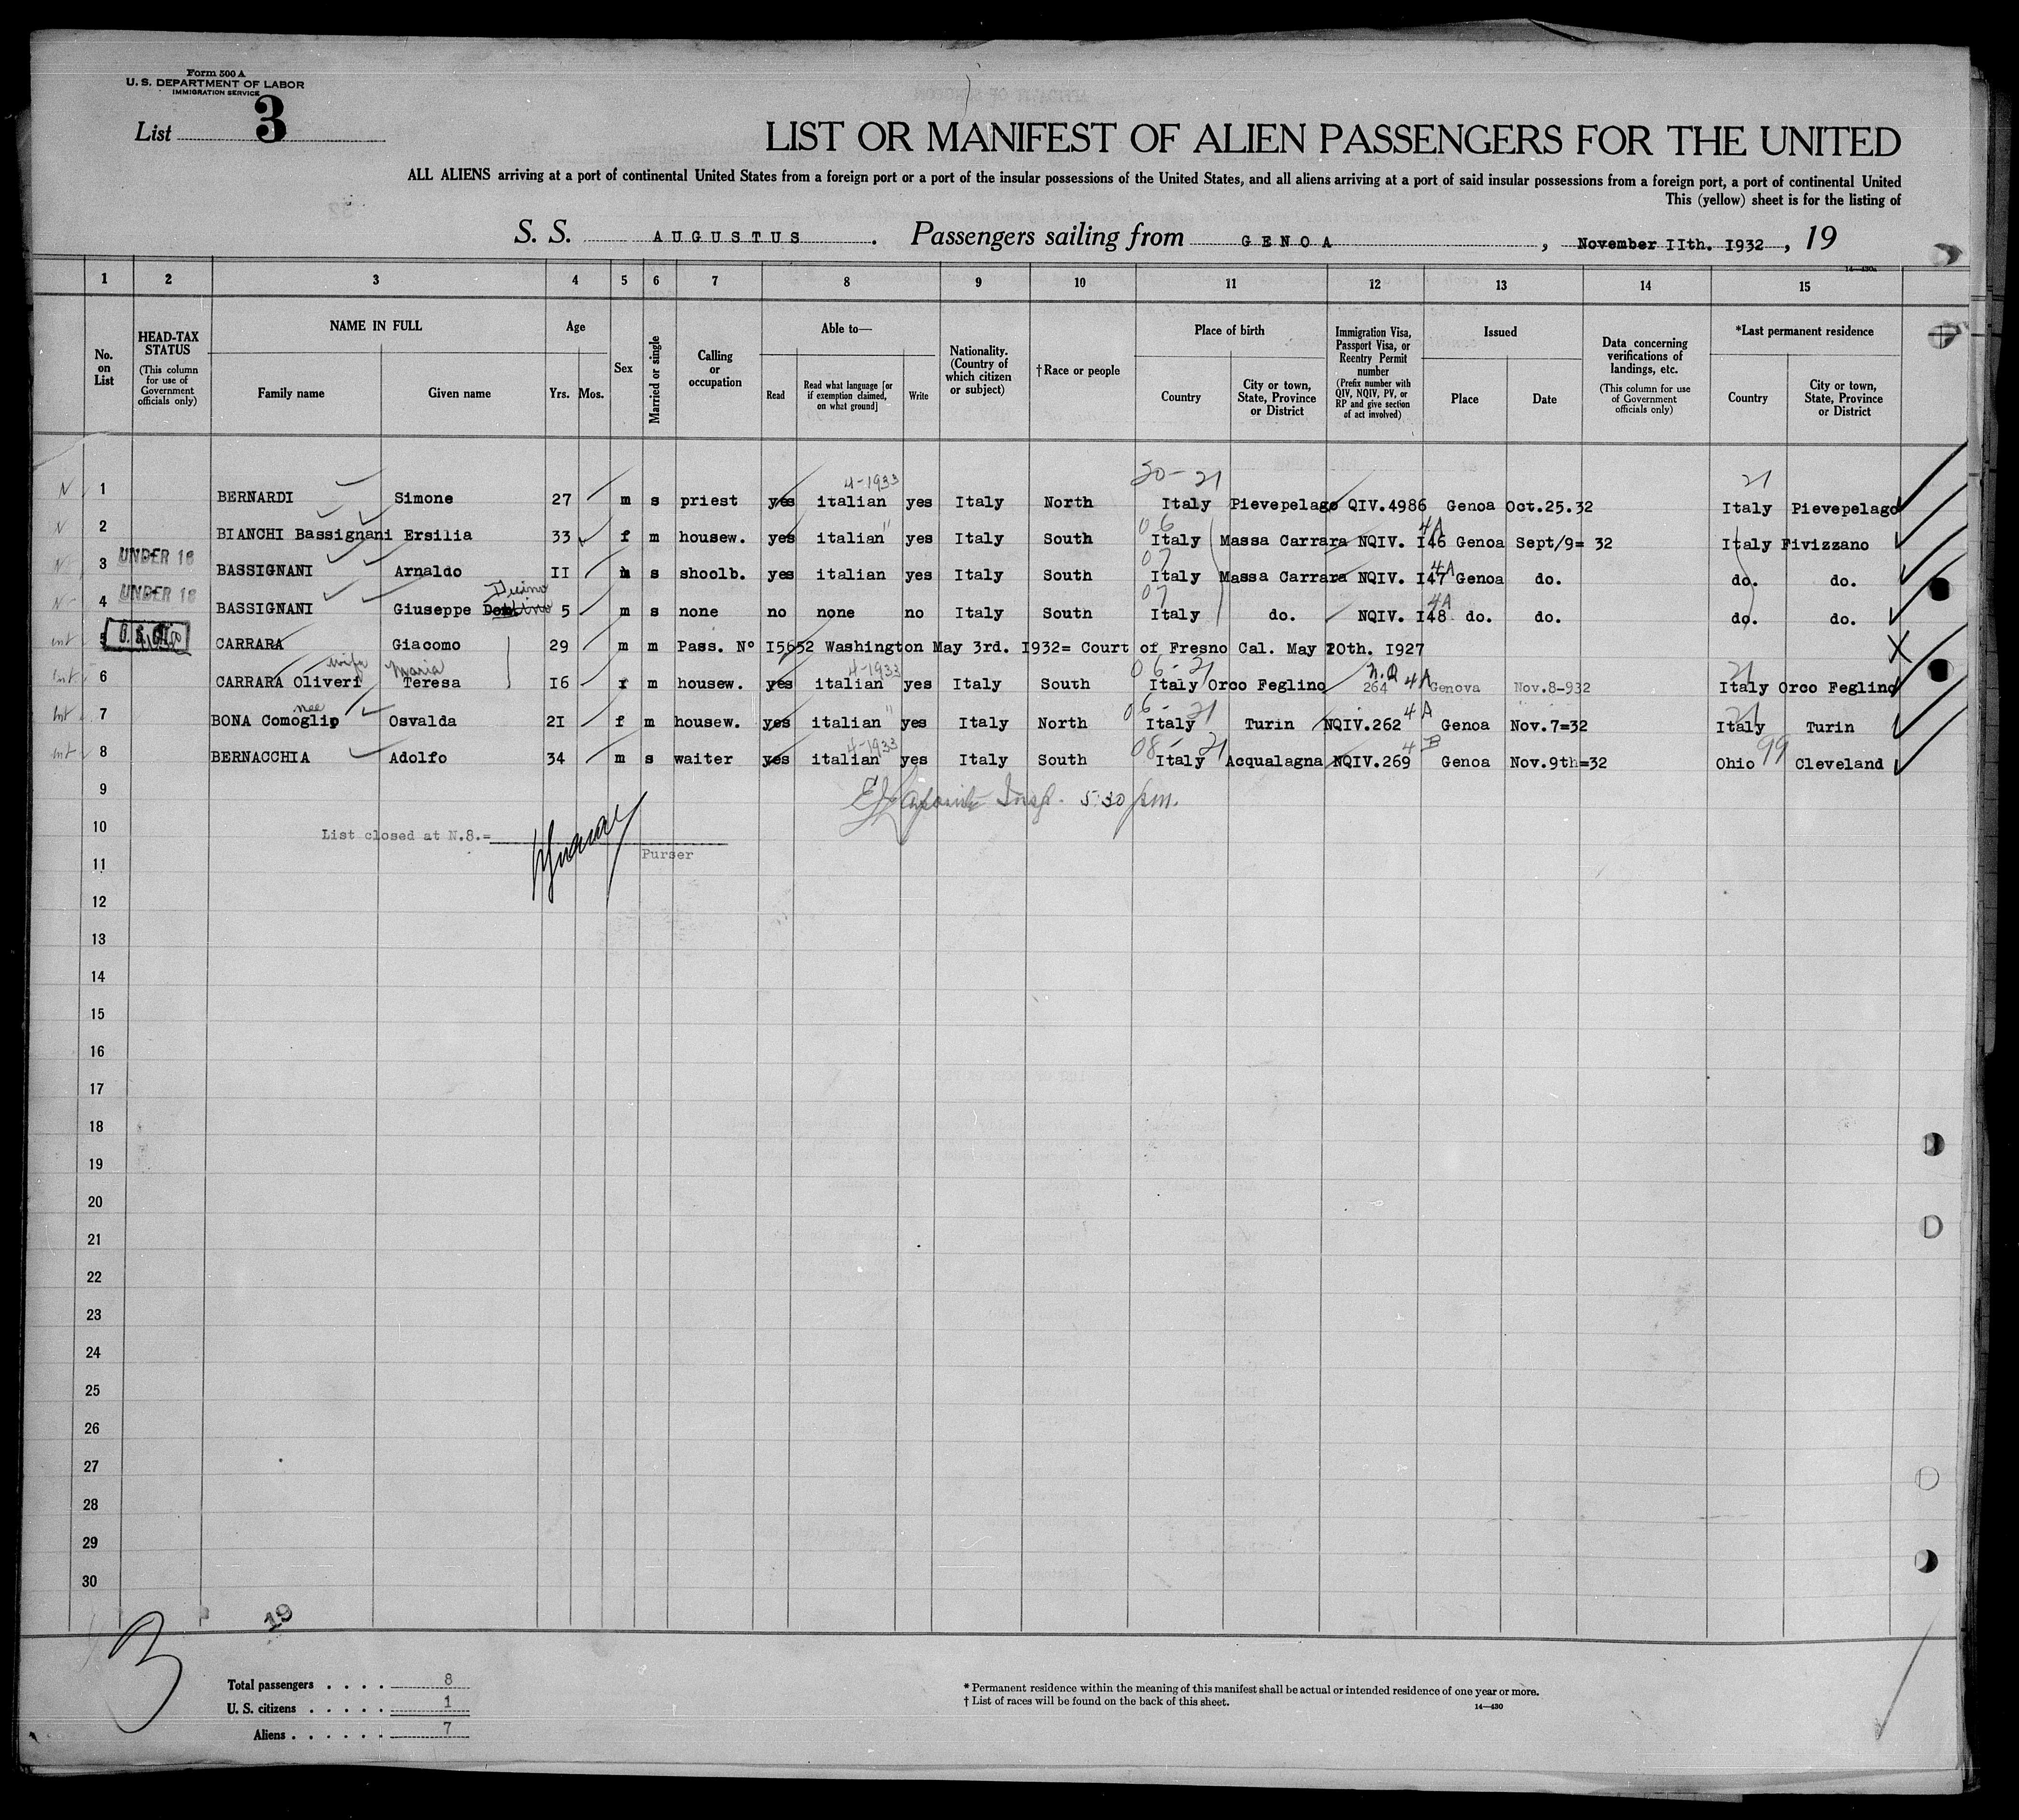 Form 500 A
U. S. DEPARTMENT OF LABOR
IMMIGRATION SERVICE
List 3
LIST OR MANIFEST OF ALIEN PASSENGERS FOR THE UNITED
ALL ALIENS arriving at a port of continental United States from a foreign port or a port of the insular possessions of the United States, and all aliens arriving at a port of said insular possessions from a foreign port, a port of continental United
This (yellow) sheet is for the listing of
S. S. AUGUSTUS . Passengers sailing from GENOA , November IIth. 1932 , 19
14—430a
1 2 3 4 5 6 7 8 9 10 11 12 13 14 15
No. on List
HEAD-TAX STATUS
(This column for use of Government officials only)
NAME IN FULL
Family name Given name
Age
Yrs. Mos.
Sex
Married or single
Calling or occupation
Able to—
Read Read what language [or if exemption claimed, on what ground] Write
Nationality. (Country of which citizen or subject)
†Race or people
Place of birth
Country City or town, State, Province or District
Immigration Visa, Passport Visa, or Reentry Permit number
(Prefix number with QIV, NQIV, PV, or RP and give section of act involved)
Issued
Place Date
Data concerning verifications of landings, etc.
(This column for use of Government officials only)
*Last permanent residence
Country City or town, State, Province or District
4-1933 30-21 21
N 1 BERNARDI Simone 27 m s priest yes italian yes Italy North Italy Pievepelago QIV.4986 Genoa Oct.25.32 Italy Pievepelago
" 06 4A
N 2 BIANCHI Bassignani Ersilia 33 f m housew. yes italian yes Italy South Italy Massa Carrara NQIV. I46 Genoa Sept/9= 32 Italy Fivizzano
UNDER 16 07 4A
N 3 BASSIGNANI Arnaldo II m s shoolb. yes italian yes Italy South Italy Massa Carrara NQIV. I47 Genoa do. do. do.
UNDER 16 07 4A
N 4 BASSIGNANI Giuseppe 5 m s none no none no Italy South Italy do. NQIV. I48 do. do. do. do.
int 5 CARRARA Giacomo 29 m m Pass. Nº I5652 Washington May 3rd. 1932= Court of Fresno Cal. May 20th. I927
wife Maria 4-1933 06-21 N.Q 4A 21
int 6 CARRARA Oliveri Teresa I6 f m housew. yes italian yes Italy South Italy Orco Feglino 264 Genova Nov.8-932 Italy Orco Feglino
nee " 06-21 4A 21
int 7 BONA Comoglio Osvalda 2I f m housew. yes italian yes Italy North Italy Turin NQIV.262 Genoa Nov.7=32 Italy Turin
4-1933 08-21 4B 99
int 8 BERNACCHIA Adolfo 34 m s waiter yes italian yes Italy South Italy Acqualagna NQIV.269 Genoa Nov.9th=32 Ohio Cleveland
9
Insp. 5:30 pm.
10
List closed at N.8.=
Purser
11
12
13
14
15
16
17
18
19
20
21
22
23
24
25
26
27
28
29
30
3
19
Total passengers . . . . 8
U. S. citizens . . . . . 1
Aliens . . . . . . 7
* Permanent residence within the meaning of this manifest shall be actual or intended residence of one year or more.
† List of races will be found on the back of this sheet.
14—430